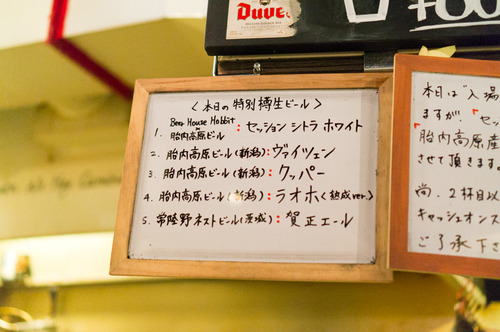 Duvel
〈本日の特別樽生ビール〉
Beer House Hobbit
in
1. 胎内高原ビール：セッション シトラ ホワイト
2. 胎内高原ビール(新潟)：ヴァイツェン
3. 胎内高原ビール(新潟)：クッパー
4. 胎内高原ビール(新潟)：ラオホ〈熟成ver.〉
5. 常陸野ネストビール(茨城)：賀正エール
本日は"入場
ますが、"セッ
胎内高原産
させて頂きます。
尚、2杯目以
キャッシュオン
ご了承下さ